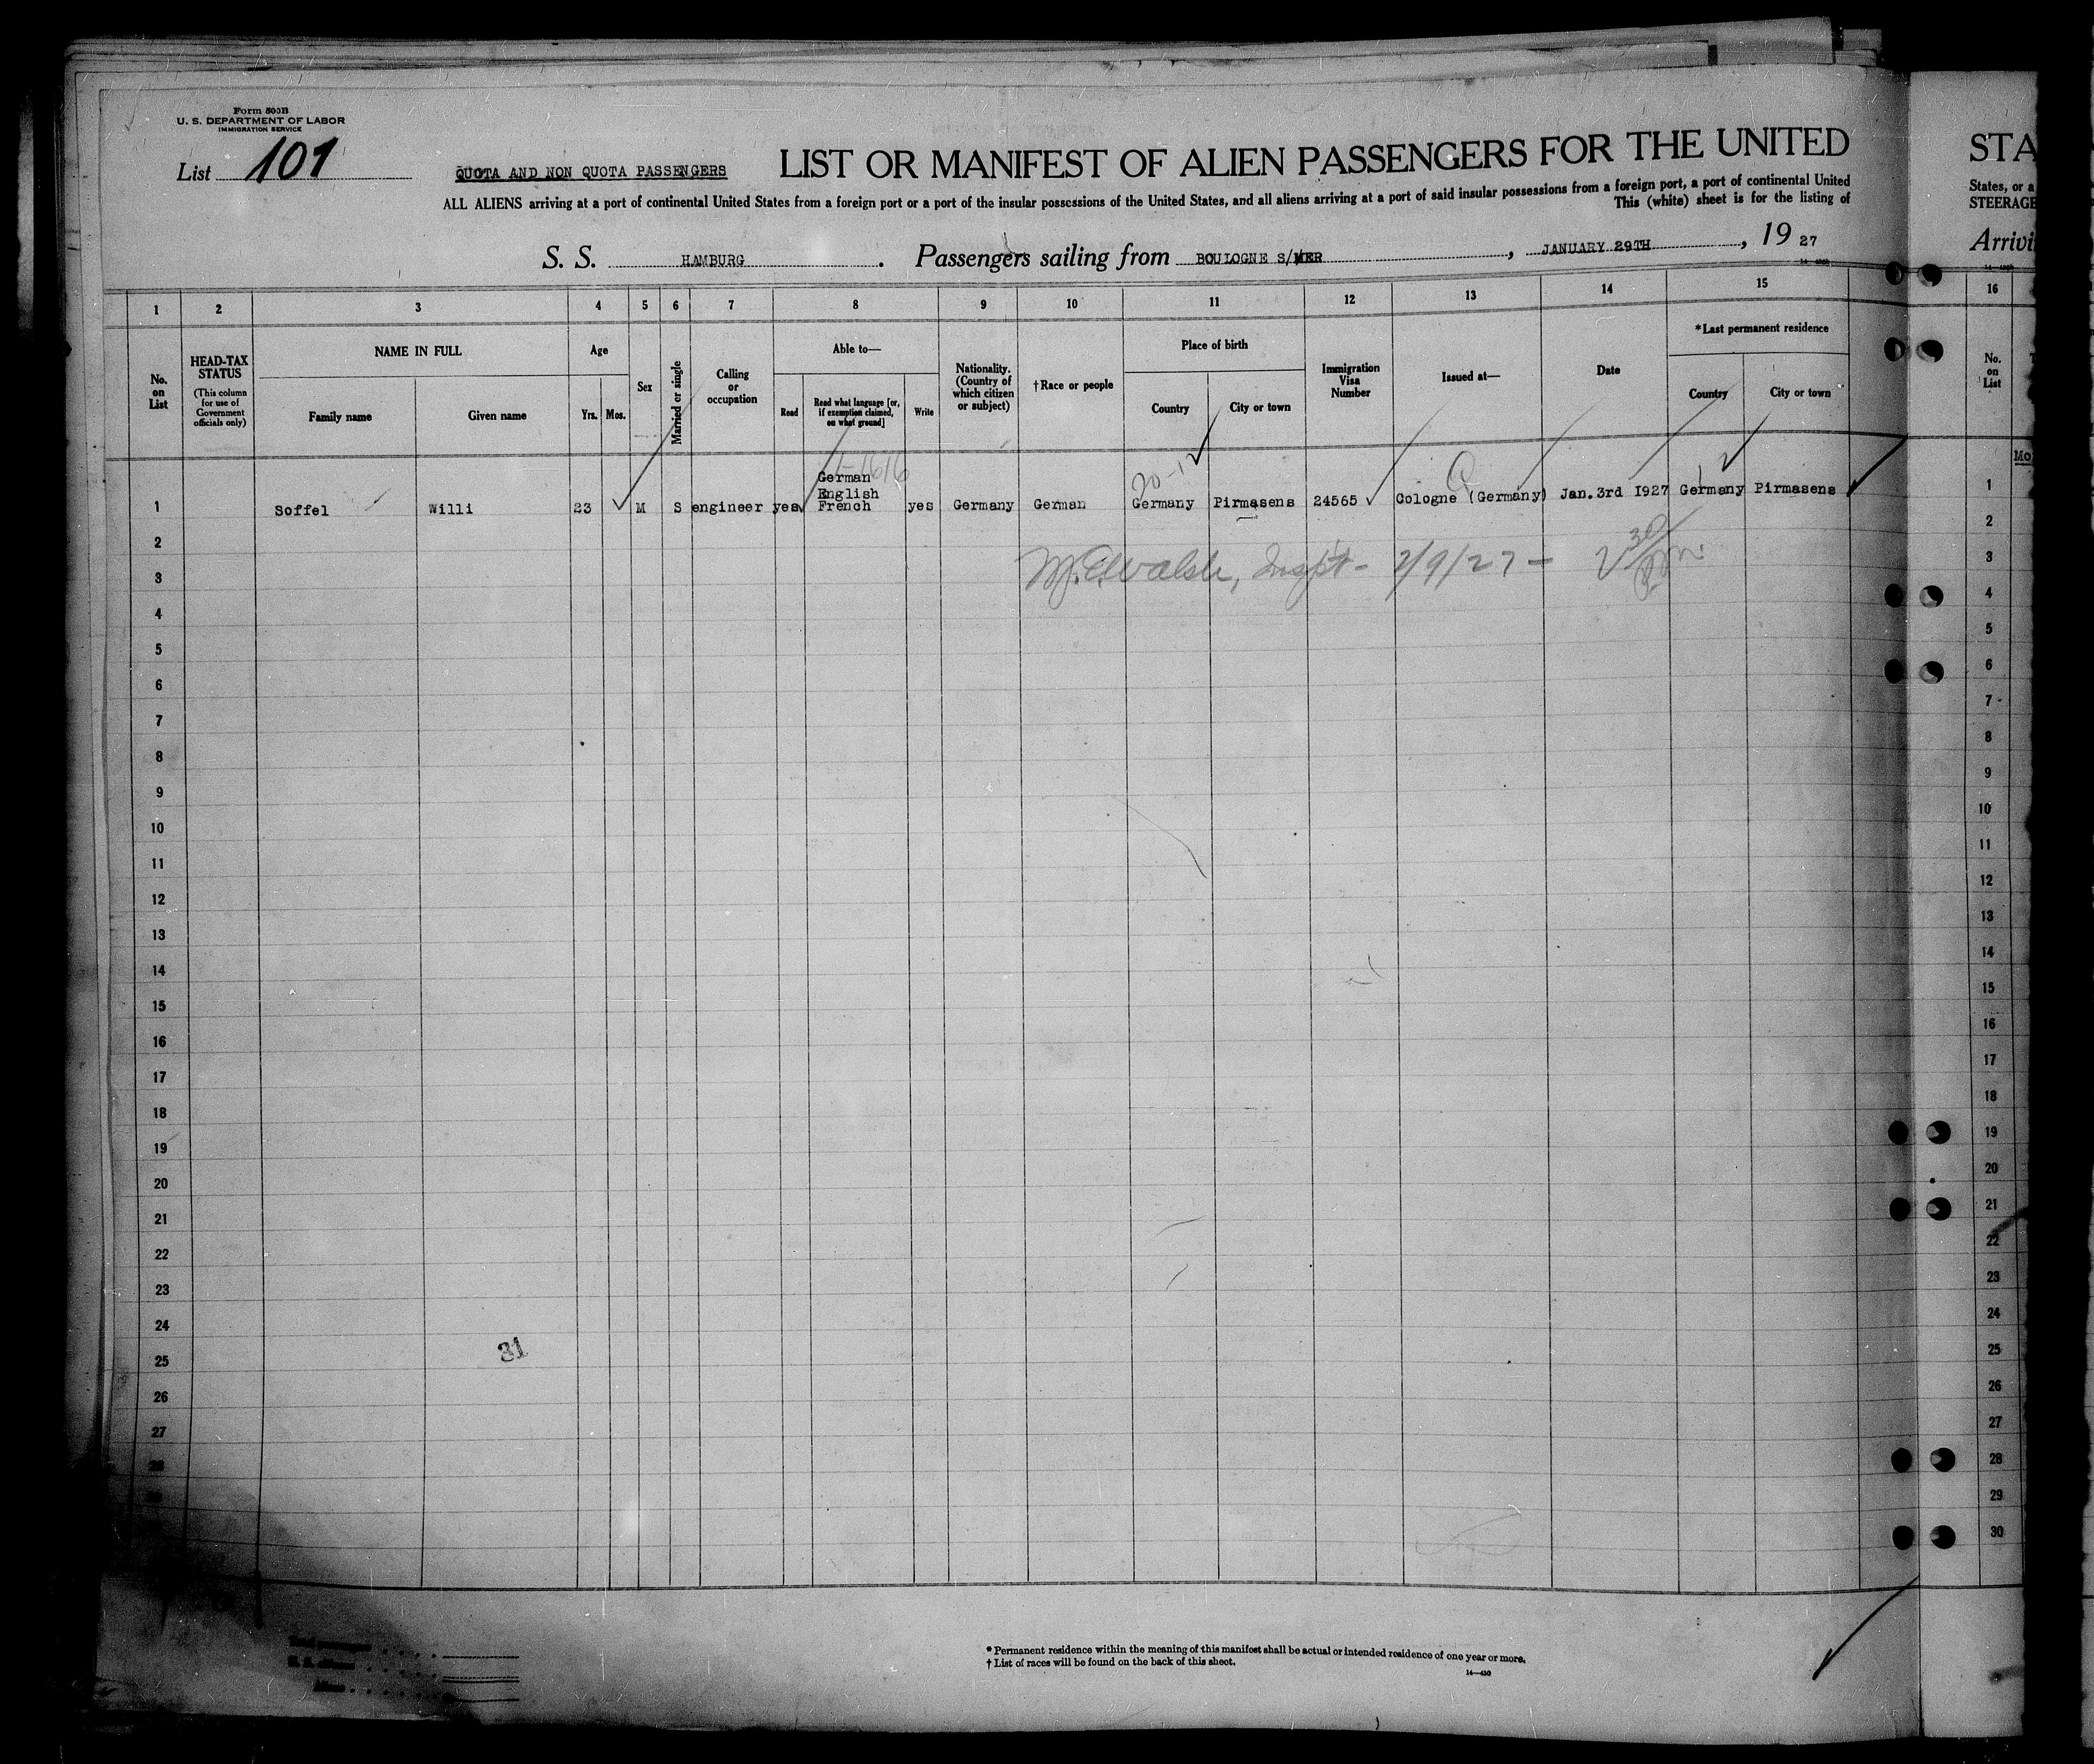 Form 500B
U. S. DEPARTMENT OF LABOR
IMMIGRATION SERVICE
List 101
QUOTA AND NON QUOTA PASSENGERS
LIST OR MANIFEST OF ALIEN PASSENGERS FOR THE UNITED
ALL ALIENS arriving at a port of continental United States from a foreign port or a port of the insular possessions of the United States, and all aliens arriving at a port of said insular possessions from a foreign port, a port of continental United
This (white) sheet is for the listing of
S. S. HAMBURG. Passengers sailing from BOULOGNE S/MER, JANUARY 29TH, 19 27
STA
States, or a
STEERAGE
Arrivi
1 2 3 4 5 6 7 8 9 10 11 12 13 14 15 16
No. on List
HEAD-TAX STATUS
(This column for use of Government officials only)
NAME IN FULL
Family name
Given name
Age
Yrs.
Mos.
Sex
Married or single
Calling or occupation
Able to—
Read
Read what language [or, if exemption claimed, on what ground]
Write
Nationality. (Country of which citizen or subject)
†Race or people
Place of birth
Country
City or town
Immigration Visa Number
Issued at—
Date
*Last permanent residence
Country
City or town
No. on List
1 Soffel Willi 23 M S engineer yes German English French yes Germany German Germany Pirmasens 24565 Cologne (Germany) Jan. 3rd 1927 Germany Pirmasens 1
20-12
2 2
M. E. Walsh, Inspt - 2/9/27 - 2 30 pm
3 3
4 4
5 5
6 6
7 7
8 8
9 9
10 10
11 11
12 12
13 13
14 14
15 15
16 16
17 17
18 18
19 19
20 20
21 21
22 22
23 23
24 24
31
25 25
26 26
27 27
28 28
29
30
* Permanent residence within the meaning of this manifest shall be actual or intended residence of one year or more.
† List of races will be found on the back of this sheet.